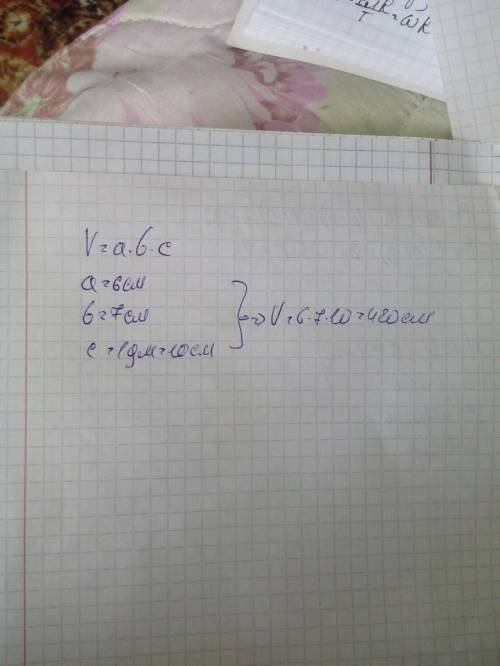 T = ωR
V=a·b·c
a=6см
b=7см
c=1дм=10см
=> V=6·7·10=420см